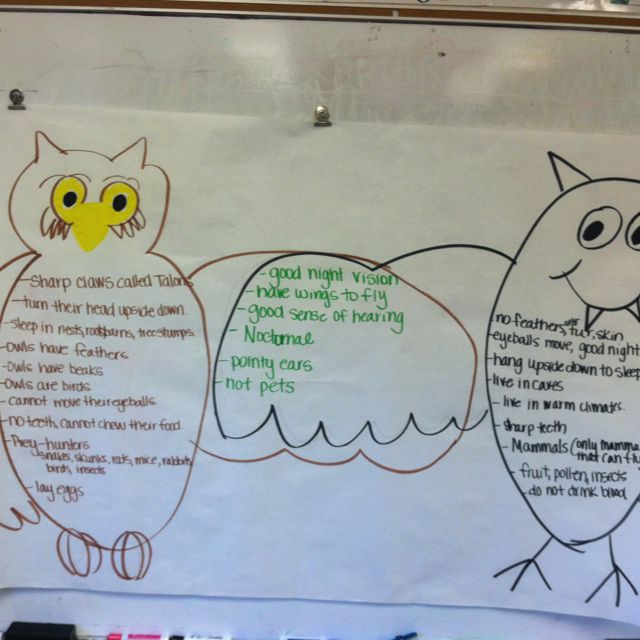 - Sharp claws called Talons
- turn their head upside down.
- sleep in nests, barns, tree stumps.
- Owls have feathers
- Owls have beaks
- Owls are birds
- cannot move their eyeballs
- no teeth, cannot chew their food
- Prey-hunters
snakes, skunks, rats, mice, rabbits
birds, insects
- lay eggs
- good night vision
- have wings to fly
- good sense of hearing
- Nocturnal
- pointy ears
- not pets
no feathers, fur, skin
eyeballs move, good night
- hang upside down to sleep
- live in caves
- live in warm climates.
- sharp teeth
- Mammals (only
that can
- fruit, pollen, insects
- do not drink blood